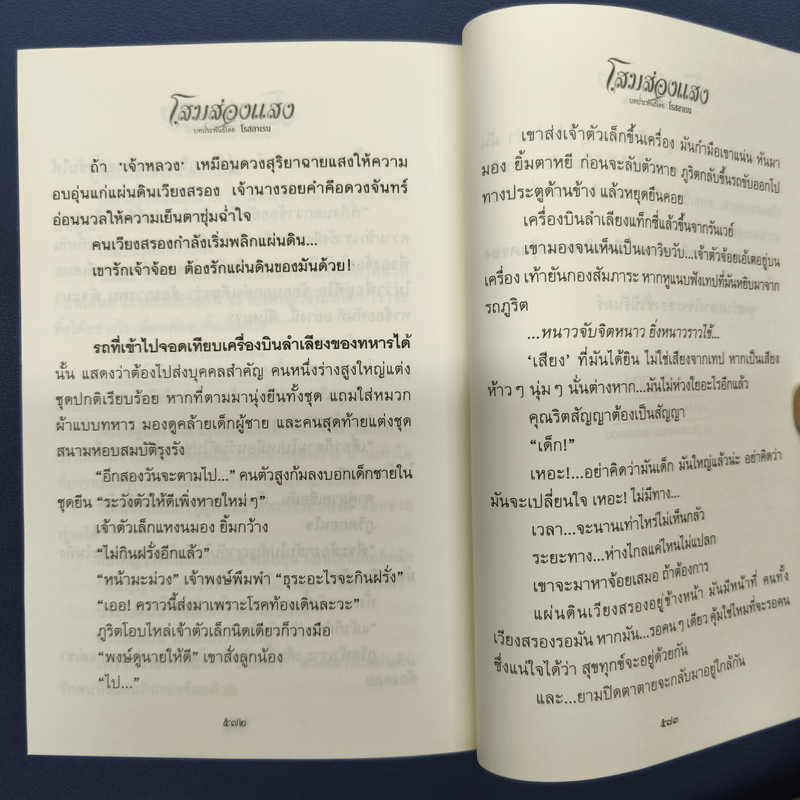 โสมส่องแสง
บทประพันธ์โดย โรสลาเรน
ถ้า ‘เจ้าหลวง’ เหมือนดวงสุริยาฉายแสงให้ความ
อบอุ่นแก่แผ่นดินเวียงสรอง เจ้านางรอยคำคือดวงจันทร์
อ่อนนวลให้ความเย็นตาชุ่มฉ่ำใจ
คนเวียงสรองกำลังเริ่มพลิกแผ่นดิน...
เขารักเจ้าจ้อย ต้องรักแผ่นดินของมันด้วย!
รถที่เข้าไปจอดเทียบเครื่องบินลำเลียงของทหารได้
นั้น แสดงว่าต้องไปส่งบุคคลสำคัญ คนหนึ่งร่างสูงใหญ่แต่ง
ชุดปกติเรียบร้อย หากที่ตามมานุ่งยีนทั้งชุด แถมใส่หมวก
ผ้าแบบทหาร มองดูคล้ายเด็กผู้ชาย และคนสุดท้ายแต่งชุด
สนามหอบสมบัติรุงรัง
“อีกสองวันจะตามไป...” คนตัวสูงก้มลงบอกเด็กชายใน
ชุดยีน “ระวังตัวให้ดีเพิ่งหายใหม่ๆ”
เจ้าตัวเล็กแหงนมอง ยิ้มกว้าง
“ไม่กินฝรั่งอีกแล้ว”
“หน้ามะม่วง” เจ้าพงษ์พึมพำ “ธุระอะไรจะกินฝรั่ง”
“เออ! คราวนี้ส่งมาเพราะโรคท้องเดินละวะ”
ภูริตโอบไหล่เจ้าตัวเล็กนิดเดียวก็วางมือ
“พงษ์ดูนายให้ดี” เขาสั่งลูกน้อง
“ไป...”
๕๗๒
โสมส่องแสง
บทประพันธ์โดย โรสลาเรน
เขาส่งเจ้าตัวเล็กขึ้นเครื่อง มันกำมือเขาแน่น หันมา
มอง ยิ้มตาหยี ก่อนจะลับตัวหาย ภูริตกลับขึ้นรถขับออกไป
ทางประตูด้านข้าง แล้วหยุดยืนคอย
เครื่องบินลำเลียงแท็กซี่แล้วขึ้นจากรันเวย์
เขามองจนเห็นเป็นเงาวิบวับ...เจ้าตัวจ้อยเอ้เตอยู่บน
เครื่อง เท้ายันกองสัมภาระ หากหูแนบฟังเทปที่มันหยิบมาจาก
รถภูริต
...หนาวจับจิตหนาว ยิ่งหนาวราวไข้...
‘เสียง’ ที่มันได้ยิน ไม่ใช่เสียงจากเทป หากเป็นเสียง
ห้าวๆ นุ่มๆ นั่นต่างหาก...มันไม่ห่วงใยอะไรอีกแล้ว
คุณริตสัญญาต้องเป็นสัญญา
“เด็ก!”
เหอะ!...อย่าคิดว่ามันเด็ก มันใหญ่แล้วน่ะ อย่าคิดว่า
มันจะเปลี่ยนใจ เหอะ! ไม่มีทาง...
เวลา...จะนานเท่าไหร่ไม่เห็นกลัว
ระยะทาง...ห่างไกลแค่ไหนไม่แปลก
เขาจะมาหาจ้อยเสมอ ถ้าต้องการ
แผ่นดินเวียงสรองอยู่ข้างหน้า มันมีหน้าที่ คนทั้ง
เวียงสรองรอมัน หากมัน...รอคนๆ เดียว คุ้มใช่ไหมที่จะรอคน
ซึ่งแน่ใจได้ว่า สุขทุกข์จะอยู่ด้วยกัน
และ...ยามปิดตาตายจะกลับมาอยู่ใกล้กัน
๕๗๓